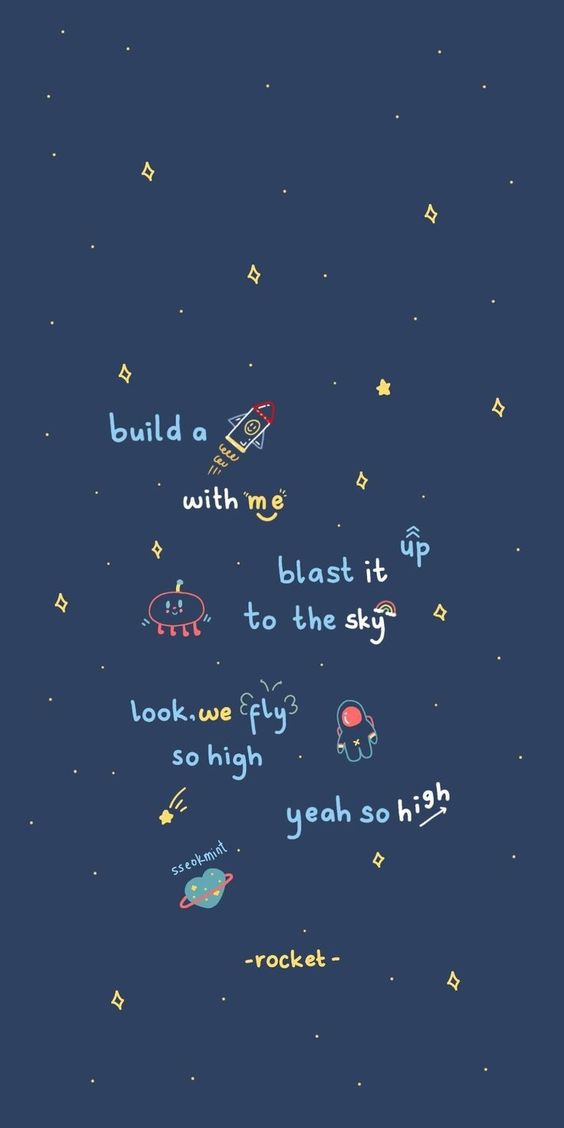 build a
with me
up
blast it
to the sky
look, we fly
so high
yeah so high
sseokmint
-rocket-